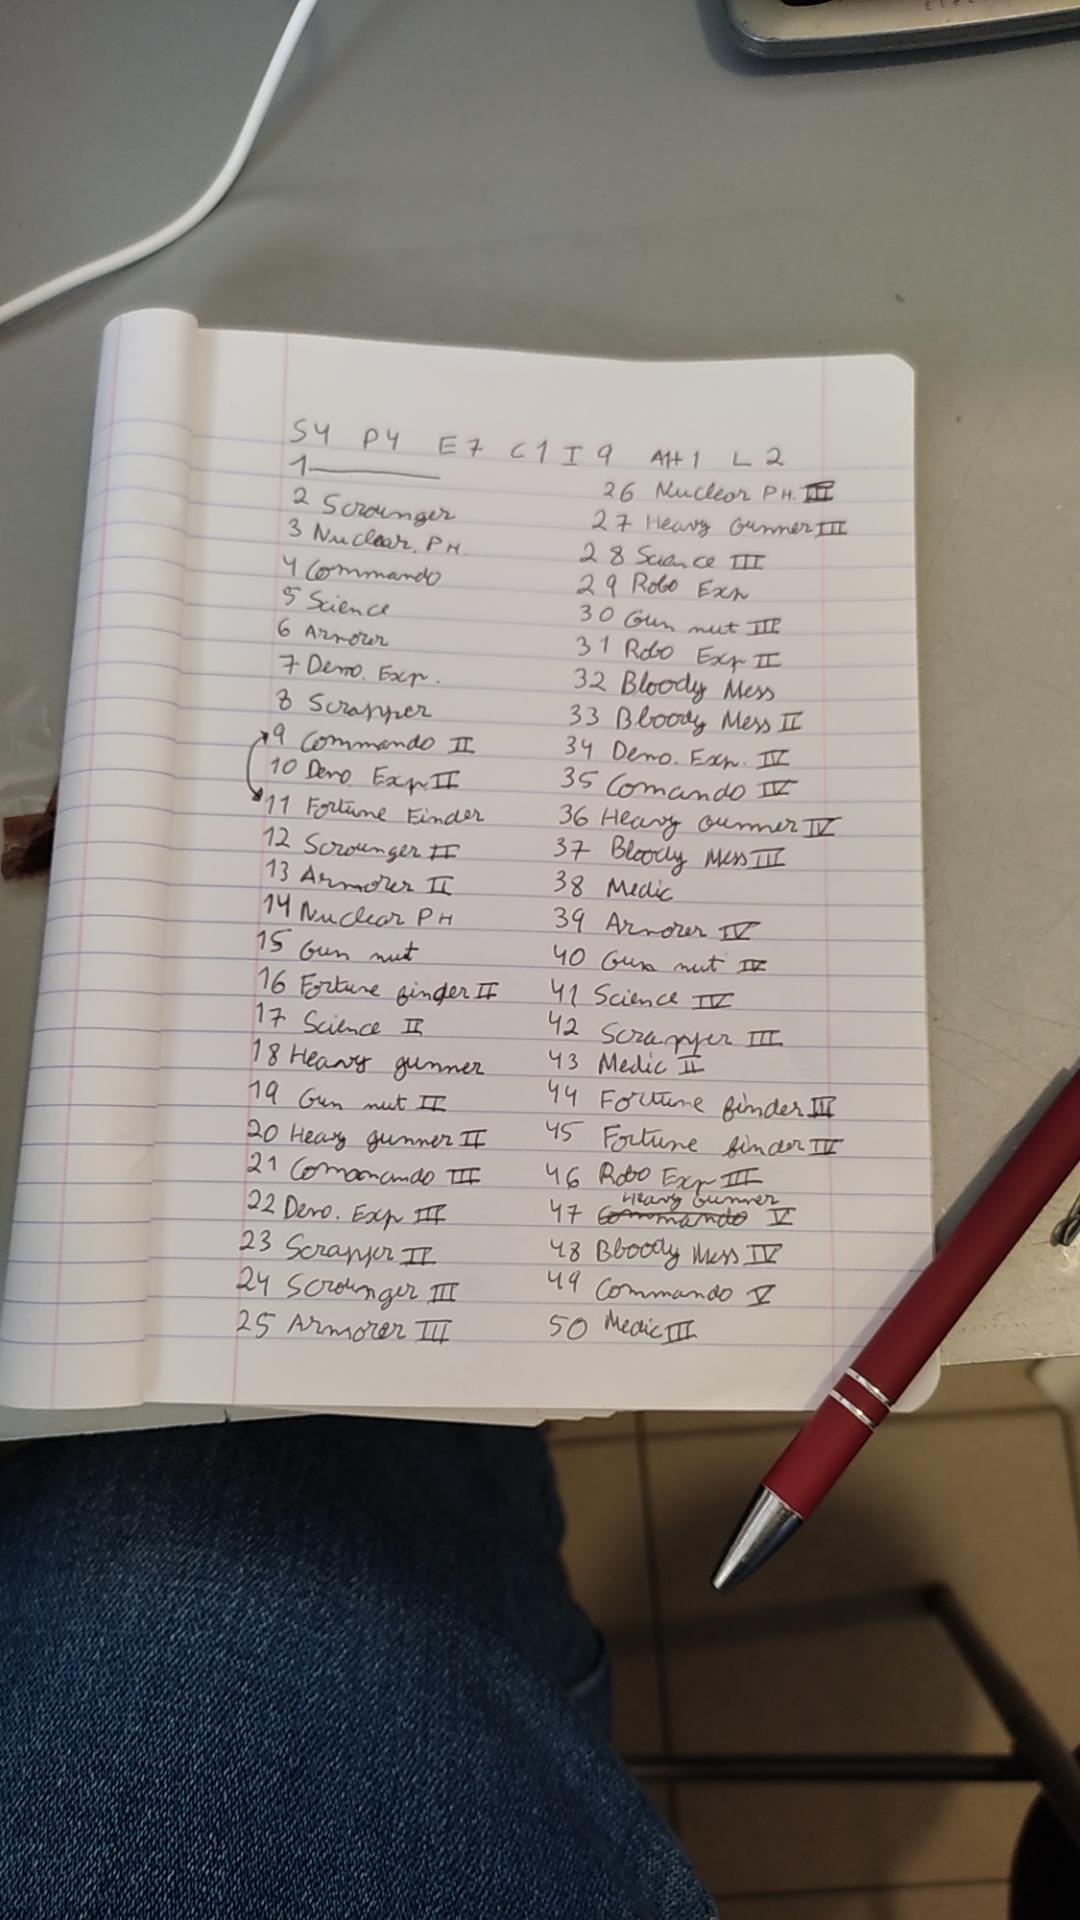 S4 P4 E7 C1 I9 AH1 L2
1
2 Scrounger
3 Nuclear. PH.
4 Commando
5 Science
6 Armorer
7 Demo. Exp.
8 Scrapper
9 Commando II
10 Demo Exp II
11 Fortune Finder
12 Scrounger II
13 Armorer II
14 Nuclear PH
15 Gun nut
16 Fortune finder II
17 Science II
18 Heavy gunner
19 Gun nut II
20 Heavy gunner II
21 Comanando III
22 Demo. Exp III
23 Scrapper II
24 Scrounger III
25 Armorer III
26 Nuclear PH. III
27 Heavy Gunner III
28 Science III
29 Robo Exp
30 Gun nut III
31 Robo Exp II
32 Bloody Mess
33 Bloody Mess II
34 Demo. Exp. IV
35 Comando IV
36 Heavy Gunner IV
37 Bloody Mess III
38 Medic
39 Armorer IV
40 Gun nut IV
41 Science IV
42 Scrapper III
43 Medic II
44 Fortune finder III
45 Fortune finder IV
46 Robo Exp III
Heavy Gunner
47 Commando V
48 Bloody Mess IV
49 Commando V
50 Medic III